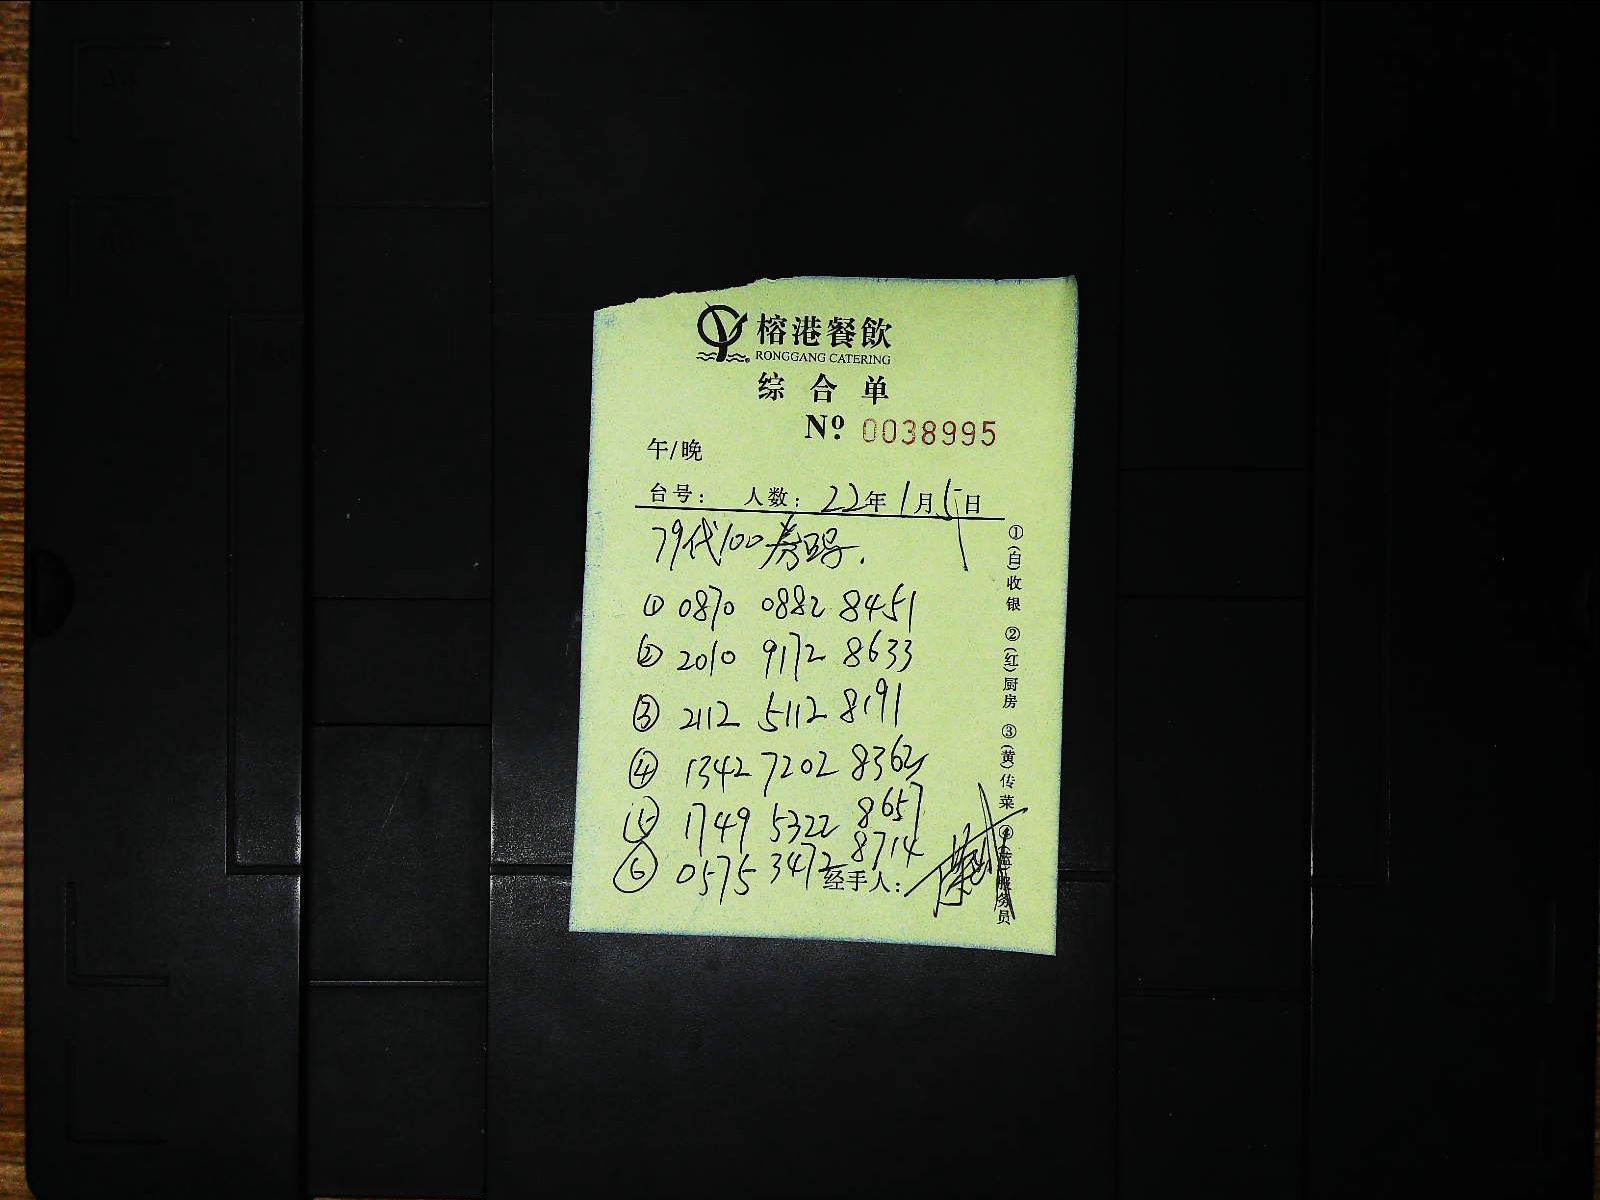 榕港餐飲
RONGGANG CATERING
综合单
Nº 0038995
午/晚
台号: 人数: 22年1月5日
79代100券码.
① 0870 0882 8451
② 2010 9172 8633
③ 2112 5112 8191
④ 1342 7202 8362
⑤ 1749 5322 8657
⑥ 0575 3472 8714
经手人:
①(白)收银 ②(红)厨房 ③(黄)传菜 ④(蓝)服务员